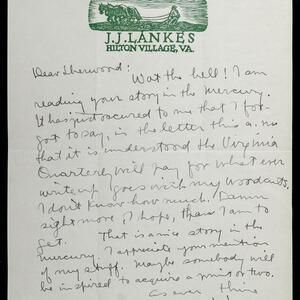 J.J. LANKES
HILTON VILLAGE, VA.
Dear Sherwood:
Wat the hell! I am
reading your story in the Mercury.
It has just occured to me that I for-
got to say, in the letter this a.m.
that it is understood the Virginia
Quarterly will pay for what ever
writeup goes with my woodcuts.
I don't know how much. Damn
sight more I hope, than I am to
get.
That is a nice story in the
mercury. I appreciate your mention
of my stuff. Maybe somebody will
be inspired to acquire a print or two.
As ever thine